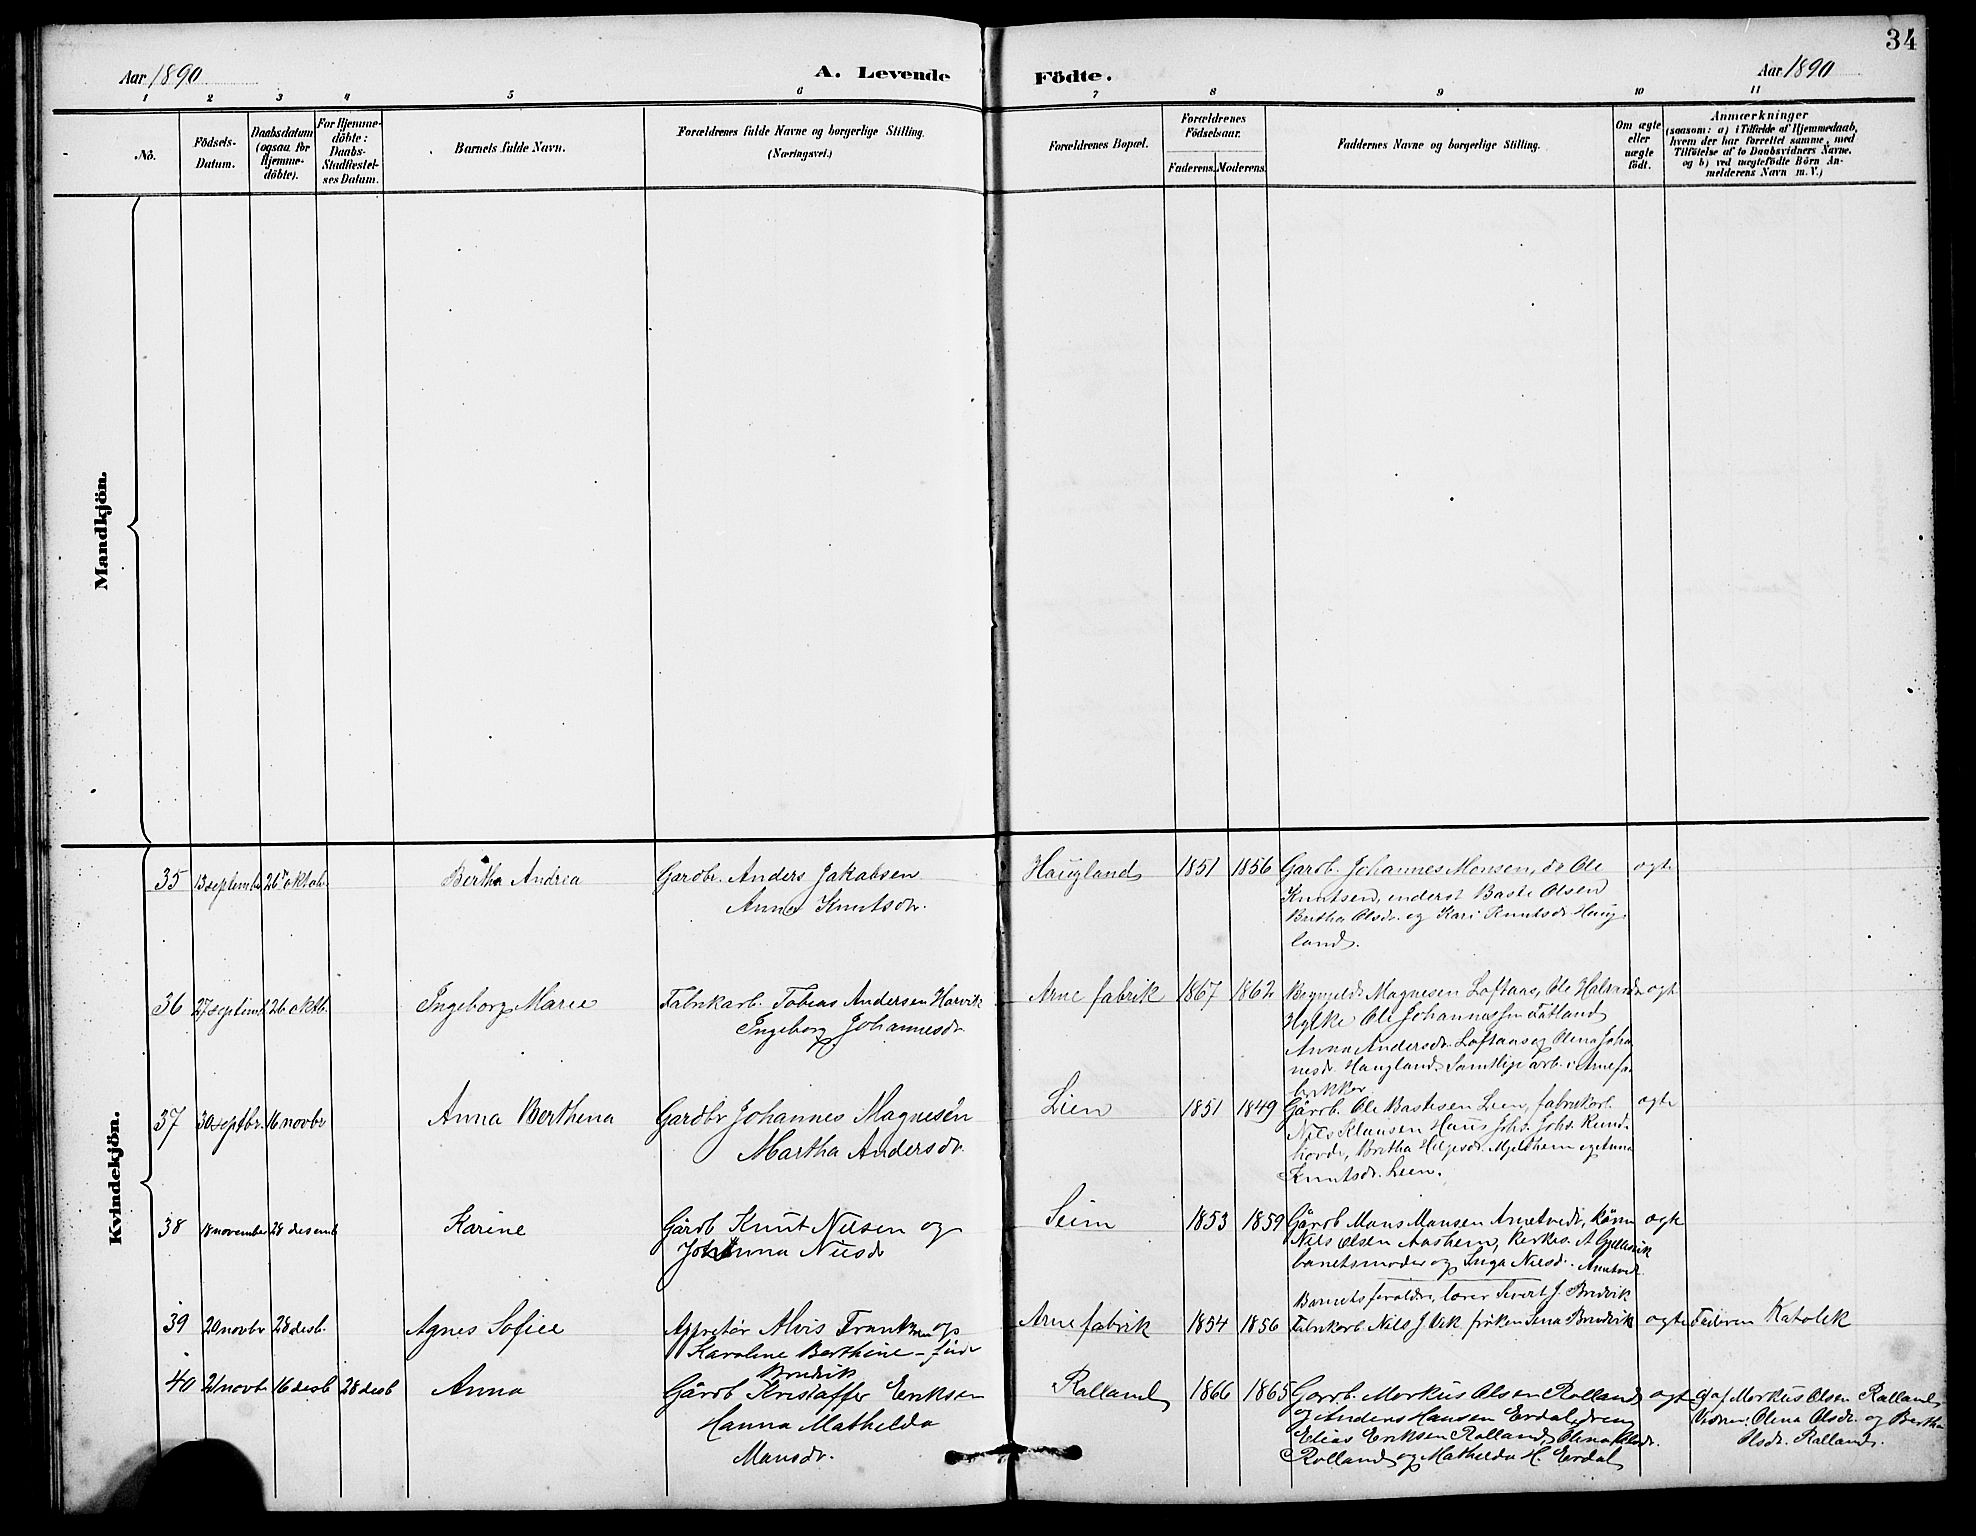 34
Aar 1890
A. Levende
Födte.
Aar 1890
1 2 3 4 5 6 7 8 9 10 11
No.
Födsels-
Datum.
Daabsdatum
(ogsaa for
Hjemme-
döbte).
For Hjemme-
döbte:
Daabs-
Stadfæstel-
ses Datum.
Barnets fulde Navn.
Forældrenes fulde Navne og borgerlige Stilling.
(Næringsvei.)
Forældrenes Bopæl.
Forældrenes
Födselsaar.
Faderens. Moderens.
Faddernes Navne og borgerlige Stilling.
Om ægte
eller
uægte
födt.
Anmærkninger
(saasom: a) i Tilfælde af Hjemmedaab,
hvem der har forrettet samme, med
Tilföielse af to Daabsvidners Navne.
og b) ved uægtefödte Börn An-
melderens Navn m. V.)
Mandkjön.
Kvindekjön.
35 13 septembr 26 oktob.
Bertha Andrea
Gardbr. Anders Jakabsen
Anna Knutsdr.
Haugland
1851 1856
Garob. Johannes Monsen, do Ole
Knutsen, enderst Baste Olsen
Britha Olsdr. og Kari Knutsdr. Haug
land.
ogte
36 27 septemb 26 oktb.
Ingeborg Marie
Fabrikarb. Tobias Andersen Harvik
Ingeborg Johannesdr
Arne fabrik
1867 1862
Magnesen Loftaas, Ole
Hylke Ole Johannessen Fotland
Anna Andersdr. Loftaas og Olena Joha
nesdr. Haugland Samtlige arb. i Arne fa
brikker
ogte
37 30 septbr. 16 novbr
Anna Berthena
Gardbr Johannes Magnesen
Martha Andersdr.
Lien
1851 1849
Gårdb. Ole Bastesen Lien, fabrikarb.
Nils Klausen Haus Johs. Johs. Rund
hovde, Britha Helgesdr. Mjeldhem og Anna
Knutsdr. Lien.
ogte
38 18 november 28 desemb
Karine
Gårdb Knut Nilsen og
Johanna Nilsdr
Seim
1853 1859
Gårdb Mons Monsen Arnetvedt,
Nils Olsen Aashem, A Gullavik
barnetsmoder og Inga Nilsdr. Arnetved.
ogte
39 20 novbr 28 desb.
Agnes Sofiee
Appretör Alvis Frank og
Karoline Berthine född
Bredvik
Arne fabrik
1854 1856
Barnets foraldre, lærer Sivert J Bredvik
Fabrikarb Nils J Vik fröken Lena Bredvik
ogte
Faderen Katolek
40 21 novbr 16 desb 28 desb
Anna
Gårdb Kristaffer Eriksen
Hanna Mathilda
Monsdr.
Rolland
1866 1865
Gardb. Markus Olsen Rolland
og Anders Hansen Erdal, dreng
Elias Eriksen Rolland, Olena Olsdr.
Rolland og Mathilda H. Erdal
ogte
af Markus Olsen Rolland
Vidner: Olena Olsdr. og Bertha
Olsdr. Rolland.